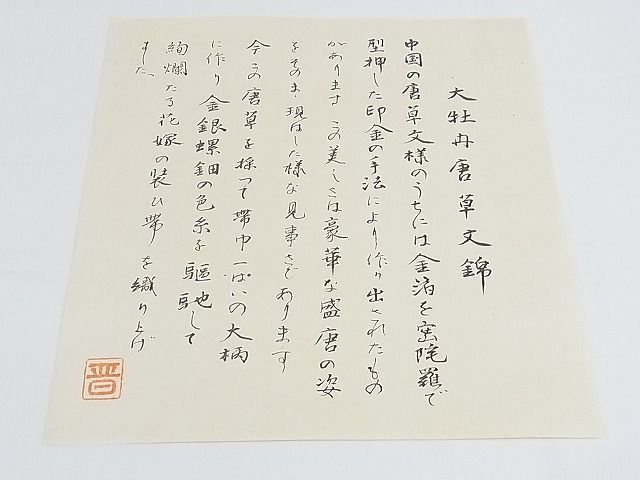 大牡丹唐草文錦
中国の唐草文様のうちには金箔を密陀羅で
型押した印金の手法により作り出されたもの
があります この美しさは豪華な盛唐の姿
をそのまゝ現はした様な見事さであります
今この唐草を採つて帯巾一ぱいの大柄
に作り 金銀螺鈿の色糸を駆使して
絢爛たる花嫁の装ひ帯を織り上げ
ました
晋